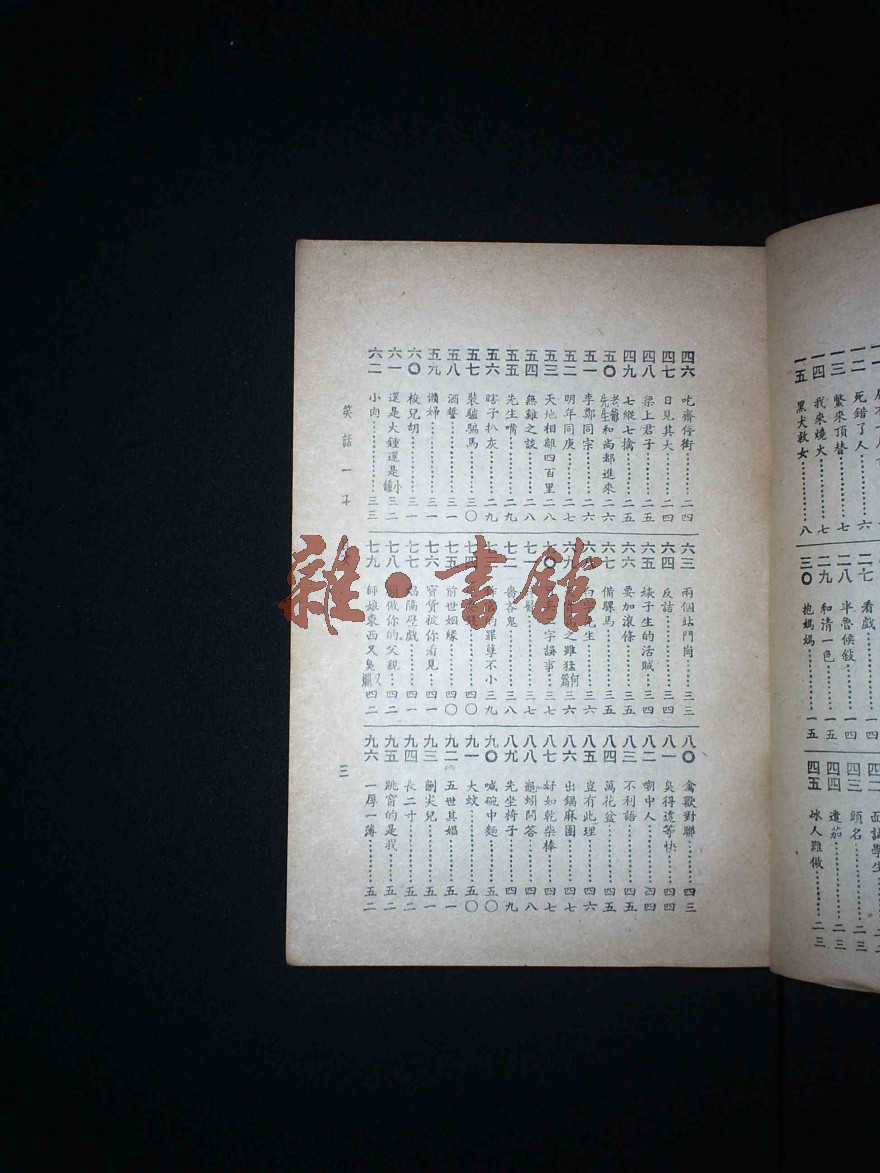 一二 死錯了人………六
一三 繫來頂替………七
一四 我來燒火………七
一五 黑犬救女………八
看戲
二八 半魯候敍………一四
二九 和清一色………一五
三〇 抱媽媽………一五
四三 頭名………二三
四四 遺茄………二三
四五 冰人難做………二三
四六 吃齋停街………二四
四七 日見其大………二四
四八 梁上君子………二五
四九 七縱七擒………二五
五〇 老爺先生和尚都進來 二六
五一 李鄭同宗………二六
五二 明年同庚………二七
五三 天地相離四百里 二八
五四 無雞之談………二八
五五 先生嘴………二九
五六 瞎子扒灰………二九
五七 裝驢騙馬………三〇
五八 酒誓………三一
五九 懶婦………三一
六〇 梭兒胡………三一
六一 還是大鍾還是小鍾 三二
六二 小肉………三三
六三 兩個站門崗………三三
六四 反詰………三四
六五 婊子生的活賊………三四
六六 要加滾條………三五
六七 備騾馬………三五
生………三六
之雖猛何篇 三六
字誤事………三七
三七
七二 嗇吝鬼………三八
的罪孽不小 三九
四〇
七五 前世姻緣………四〇
七六 寶貨被你看見………四一
隔壁戲………四一
七八 做你的父親………四二
七九 師娘東西又臭又爛 四二
八〇 禽獸對聯………四三
八一 臭得這等快………四四
八二 嘲中人………四四
八三 不利語………四五
八四 萬花盆………四五
八五 豈有此理………四六
八六 出鍋麻團………四七
八七 好如乾柴棒………四七
八八 龜蚓問答………四八
八九 先坐椅子………四九
九〇 喊碗中麵………五〇
九一 大蚊………五〇
九二 五世其娼………五一
九三 劊尖兒………五一
九四 長二寸………五二
九五 跳窗的是我………五二
九六 一厚一薄………五二
笑話一千
三
雜·書館